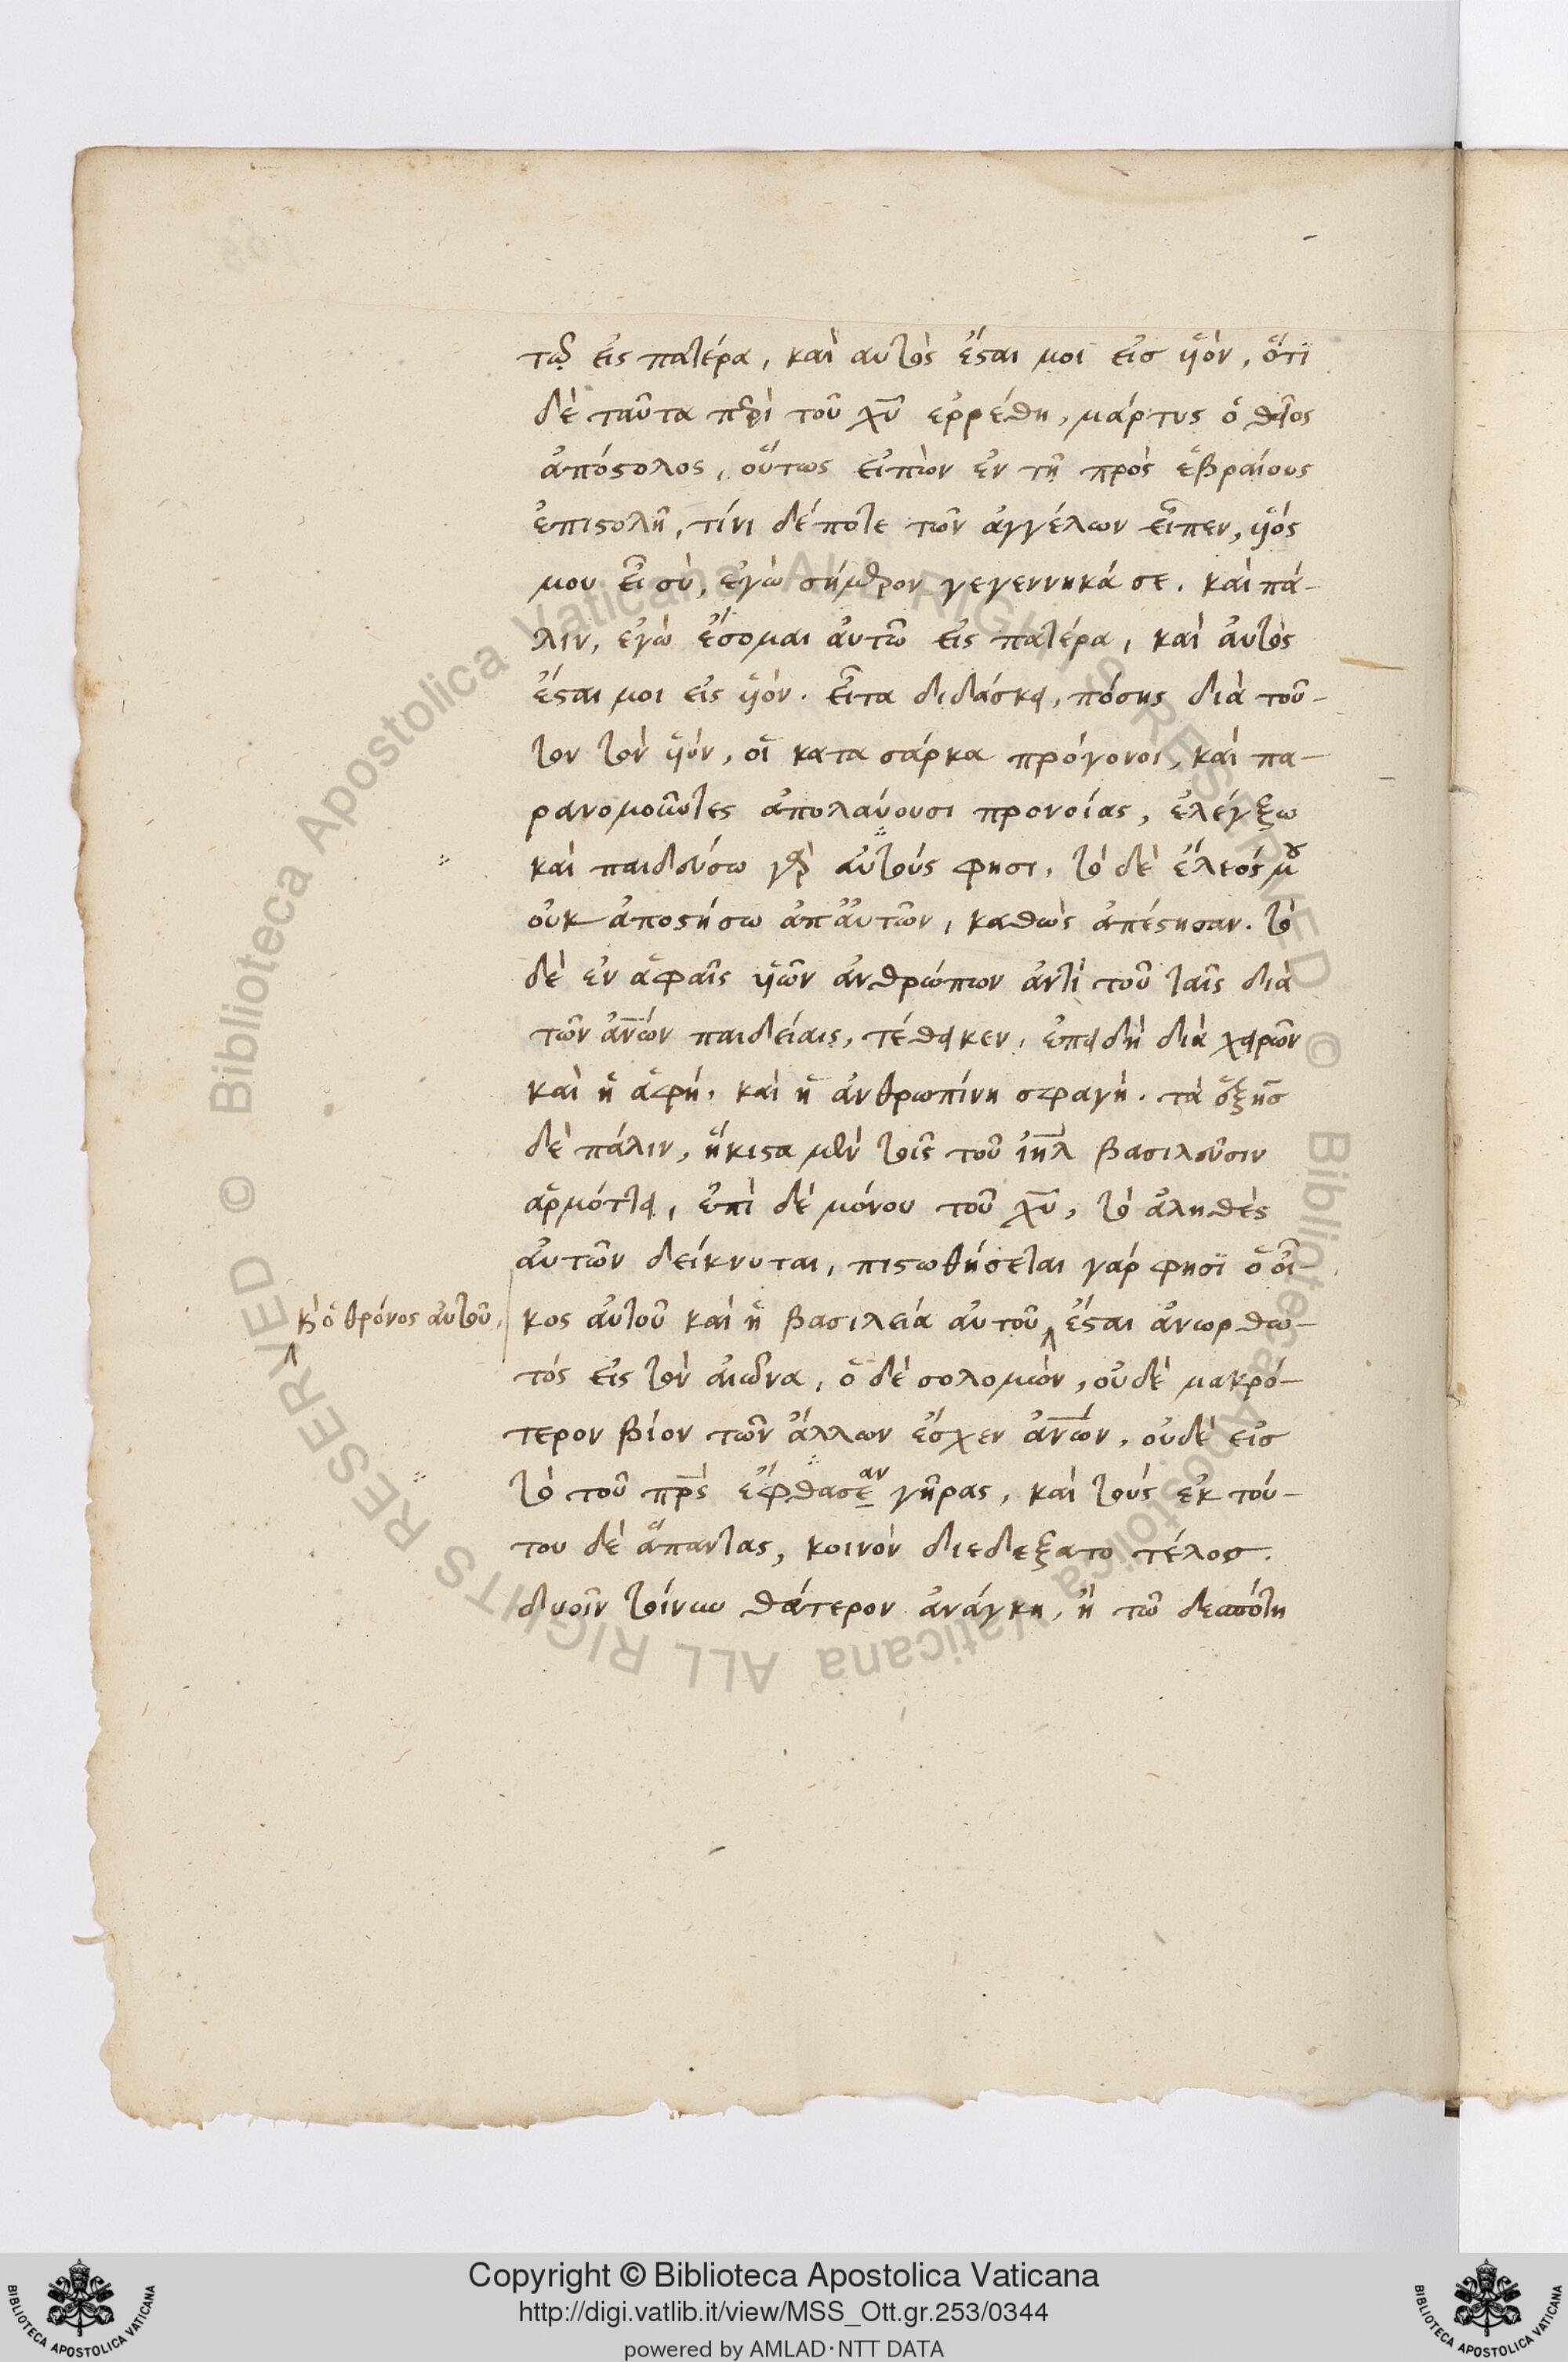 τῶ εἰς πατέρα, καὶ αὐτὸς ἔσται μοι εἰσ υἱόν, ὅτι
δὲ ταῦτα περὶ τοῦ χυ ἐρρέθη, μάρτυς ὁ θεῖος
ἀπόστολος, οὕτως εἰπὼν ἐν τῆ πρὸς ἑβραίους
ἐπιστολῆ, τίνι δέποτε τῶν ἀγγέλων εἶπεν, υἱός
μου εἶ σὺ, ἐγὼ σήμερον γεγεννηκά σε. καὶ πά-
λιν, ἐγὼ ἔσομαι ἀυτῶ εἰς πατέρα, καὶ ἀυτὸς
ἔσται μοι εἰς υἱόν. εἶτα διδάσκει, πόσης διὰ τοῦ-
τον τὸν υἱόν, οἱ κατα σάρκα πρόγονοι, καὶ πα-
ρανομοῦντες ἀπολαύουσι προνοίας, ἐλέγξω
καὶ παιδεύσω γὰρ αὐτούς φησι, τὸ δὲ ἔλεός μου
οὐκ ἀποστήσω ἀπ' ἀυτῶν, καθὼς ἀπέστησαν. τὸ
δὲ ἐν ἁφαῖς υἱῶν ἀνθρώπων ἀντὶ τοῦ ταῖς διὰ
τῶν ἀνων παιδείαις, τέθεικεν, ἐπειδὴ διὰ χειρῶν
καὶ ἡ ἁφή. καὶ ἡ ἀνθρωπίνη σφραγὴ. τὰ ἑξῆσ
δὲ πάλιν, ἥκιστα μὲν τοῖς τοῦ ιηλ βασιλεῦσιν
ἁρμόττει, ἐπὶ δὲ μόνου τοῦ χυ, τὸ ἀληθὲς
ἀυτῶν δείκνυται, πιστωθήσεται γάρ φησϊ ὁ οἶ-
κος ἀυτοῦ καὶ ἡ βασιλεία ἀυτοῦ ἔσται ἀνωρθω-
κ ὁ θρόνος ἀυτοῦ,
τός εἰς τὸν αἰῶνα, ὁ δὲ σολομὼν, οὐδὲ μακρό-
τερον βίον τῶν ἄλλων ἔσχεν ἀνων, οὐδὲ εἰσ
τὸ τοῦ πρς ἔφθασεαν γῆρας, καὶ τοὺς ἐκ τού-
του δὲ ἅπαντας, κοινὸν διεδεξατο τέλοσ.
δυοῖν τοίνυν θάτερον ἀνάγκη, ἢ τῶ δεσπότη
Copyright © Biblioteca Apostolica Vaticana
http://digi.vatlib.it/view/MSS_Ott.gr.253/0344
powered by AMLAD·NTT DATA